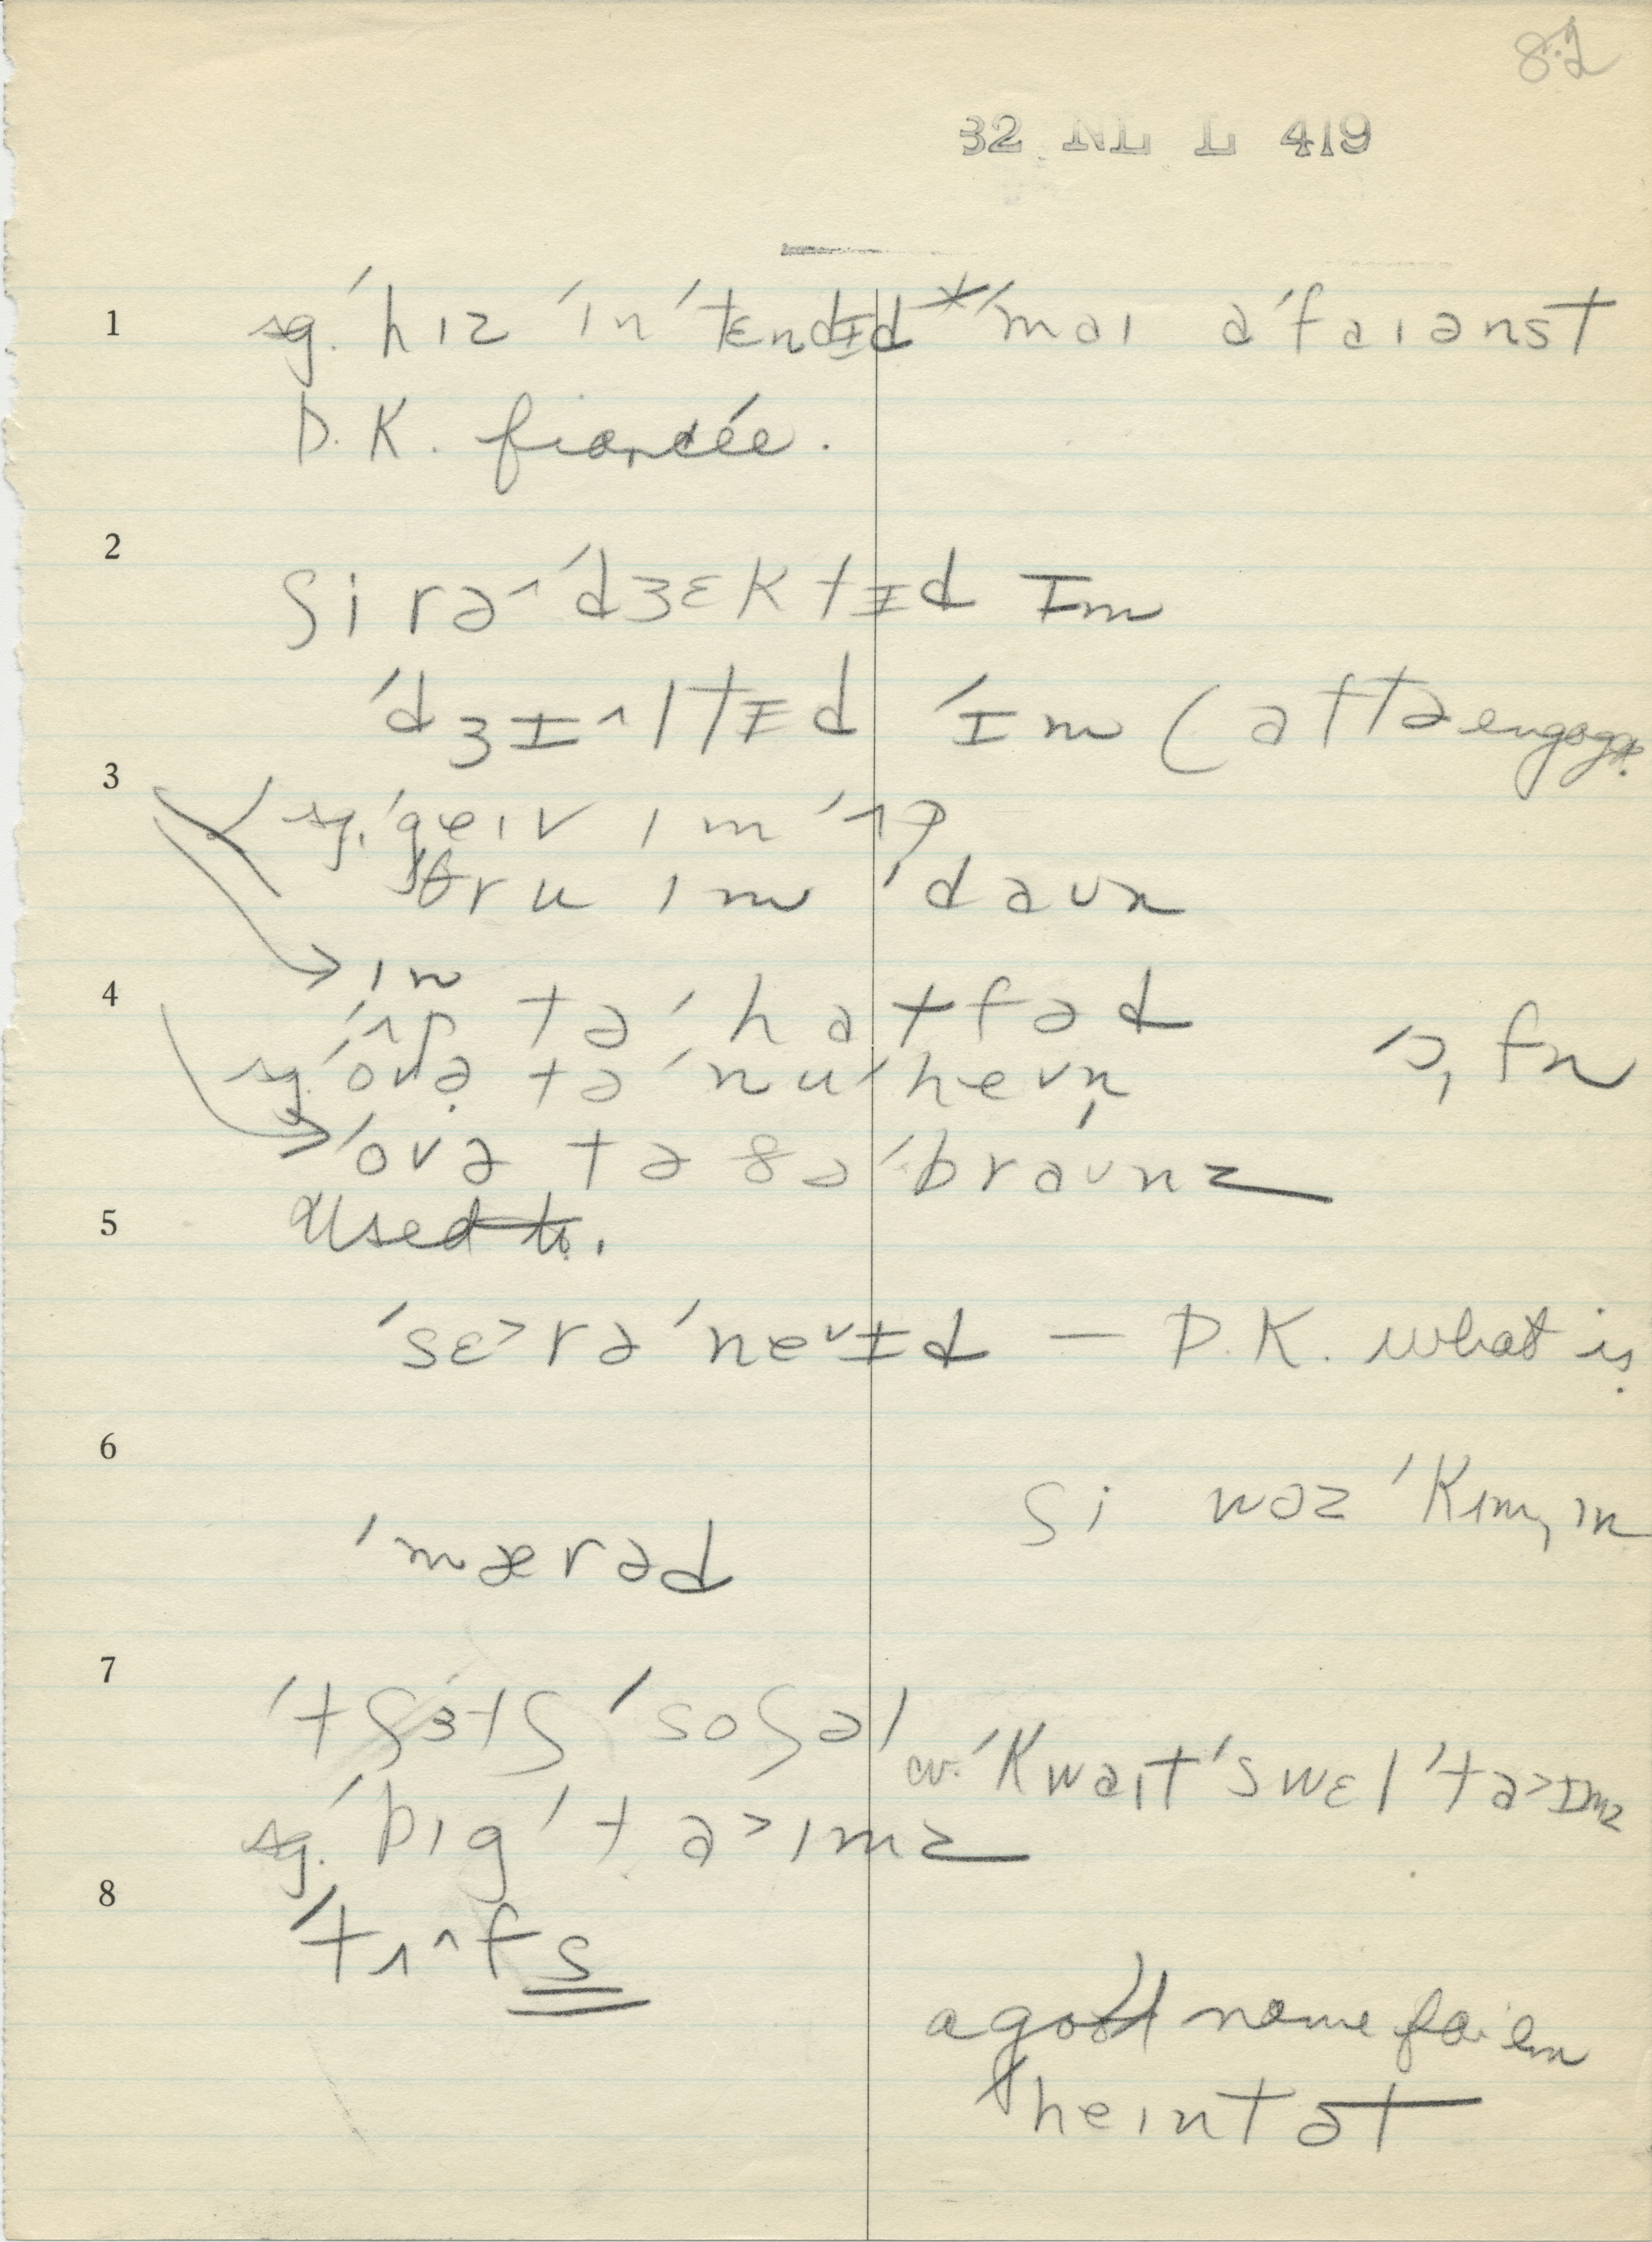 82
32 NL L 419
1 sg. ˈhɪz ˈɪnˈtɛndɪd * ˈmaɪ əˈfaɪənst
D. K. fiancée.
2
ʃi rə^ˈdʒɛktɪd ɪm
ˈdʒɪ^ltɪd ˈɪm (aftə engage.
3 sg. ˈgeɪv ɪm ˈʌp
ˈθru ɪm ˈdaun
→ ɪn
4 ˈʌp tə ˈhatfəd ˈɔ, fn
sg. ˈovə tə ˈnuˈhevn̩
→ ˈovə tə ðəˈbraunz
5 Used to.
ˈsɛ>rəˈnevɪd — D. K. what is.
6
ʃi wəz ˈkɪm,ɪn
ˈmærəd
7
ˈtʃɜtʃ ˈsoʃəl
cv. ˈkwaɪt ˈswɛl ˈta>ɪmz
sg. ˈbɪg ˈta>ɪmz
8 ˈtʌ^fs
a good name for em
ˈheɪnt ət